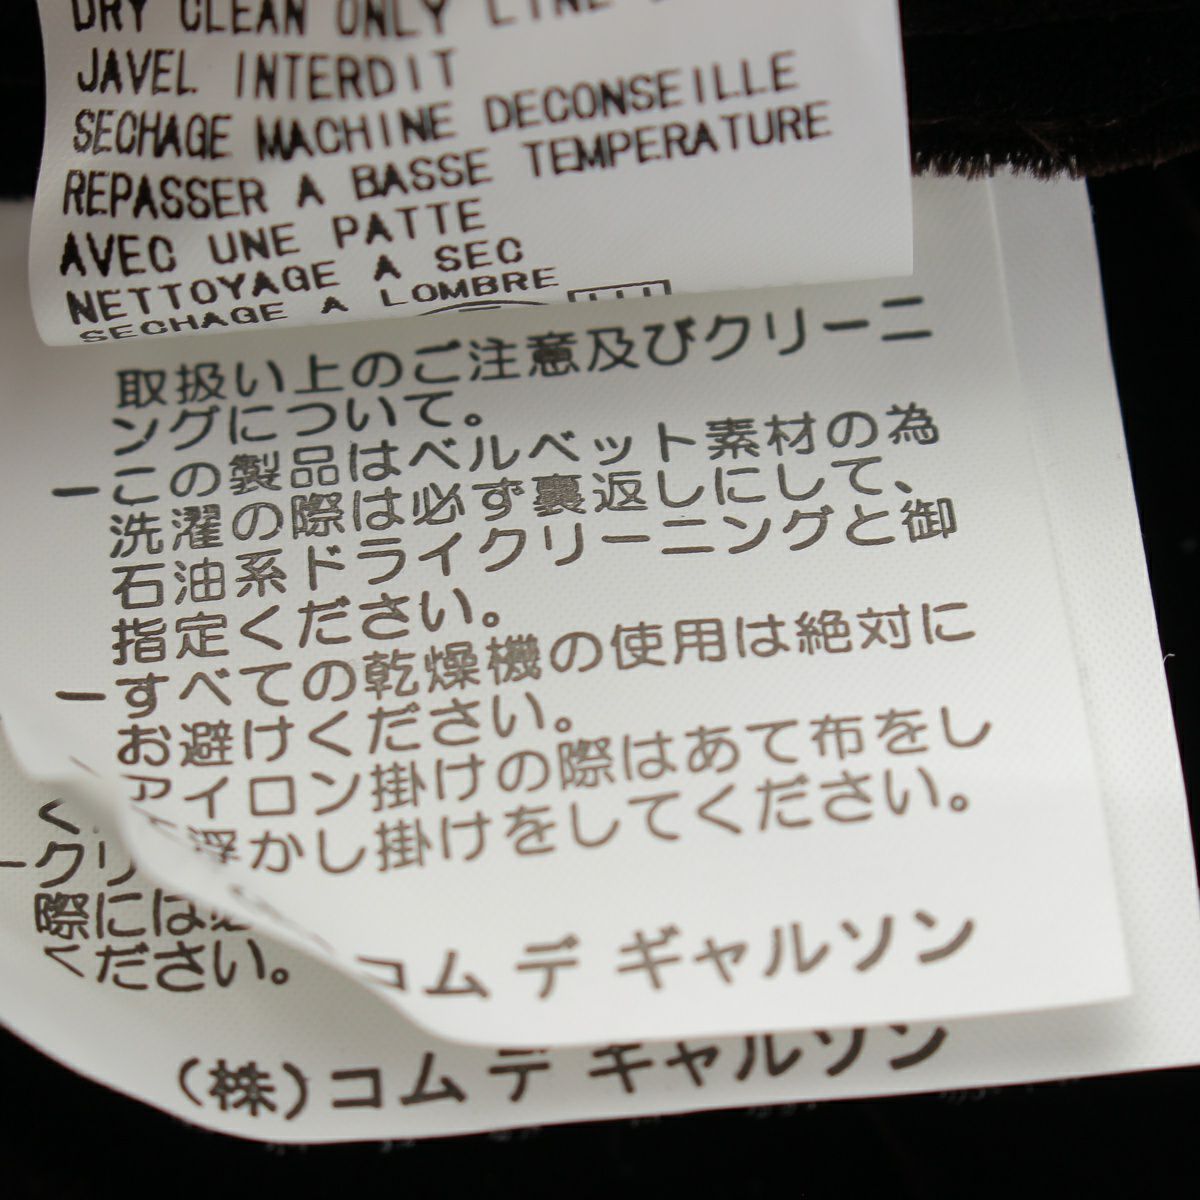 DRY CLEAN ONLY LINE
JAVEL INTERDIT
SECHAGE MACHINE DECONSEILLE
REPASSER A BASSE TEMPERATURE
AVEC UNE PATTE
NETTOYAGE A SEC
SECHAGE A LOMBRE
取扱い上のご注意及びクリーニ
ングについて。
ーこの製品はベルベット素材の為
洗濯の際は必ず裏返しにして、
石油系ドライクリーニングと御
指定ください。
ーすべての乾燥機の使用は絶対に
お避けください。
アイロン掛けの際はあて布をし
て浮かし掛けをしてください。
コム デ ギャルソン
く
ークリ
際には必
ください。
(株)コム デ ギャルソン